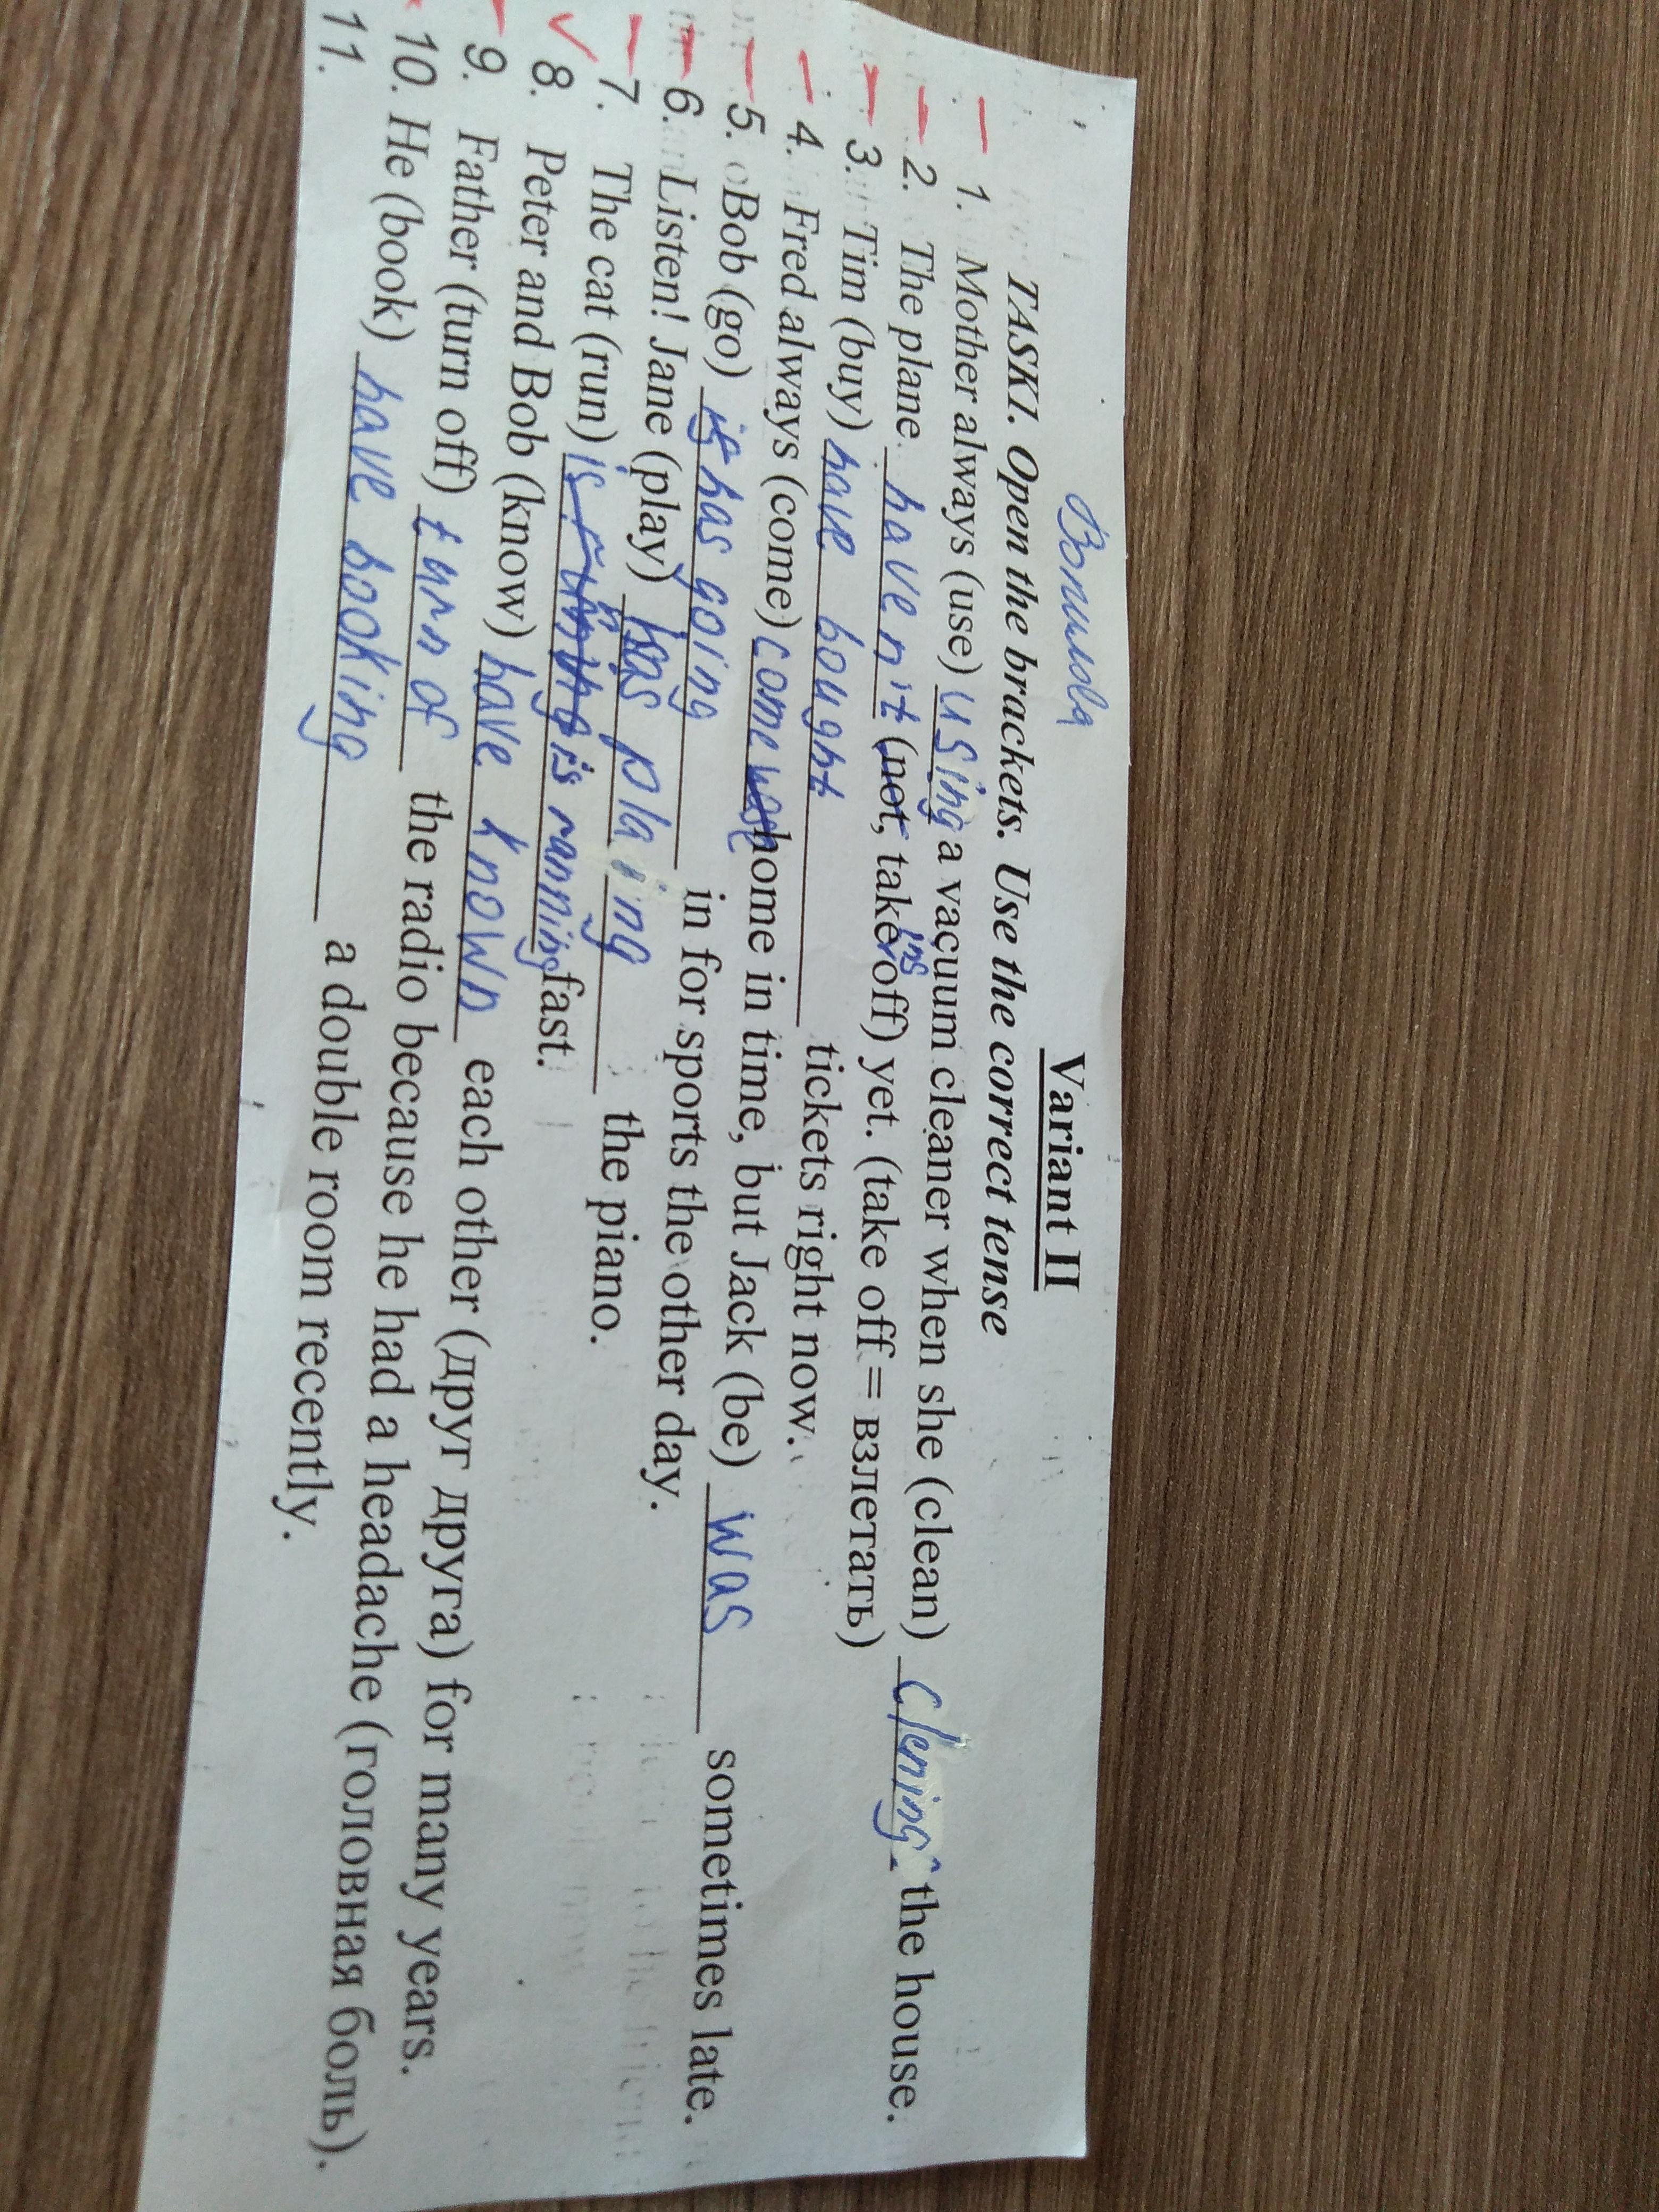 Вопилова
Variant II
TASK1. Open the brackets. Use the correct tense
1. Mother always (use) using a vacuum cleaner when she (clean) clening the house.
2. The plane haven't (not, take ing off) yet. (take off = взлетать)
3. Tim (buy) have bought tickets right now.
4. Fred always (come) come home in time, but Jack (be) was sometimes late.
5. Bob (go) is has going in for sports the other day.
6. Listen! Jane (play) has plaing the piano.
7. The cat (run) is running is running fast.
8. Peter and Bob (know) have known each other (друг друга) for many years.
9. Father (turn off) turn of the radio because he had a headache (головная боль).
10. He (book) have booking a double room recently.
11.